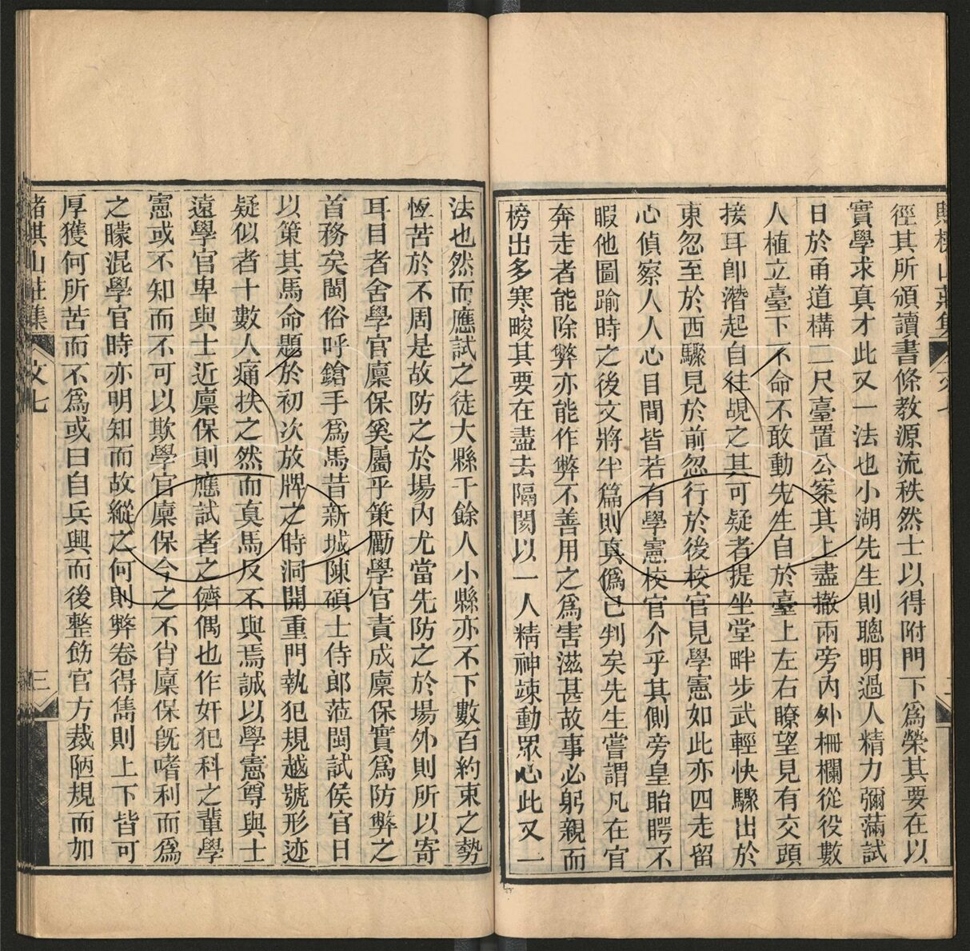 賭棋山莊集 文七 二
徑其所頒讀書條教源流秩然士以得附門下爲榮其要在以
實學求真才此又一法也小湖先生則聰明過人精力彌滿試
日於甬道構二尺臺置公案其上盡撤兩旁內外柵欄從役數
人植立臺下不命不敢動先生自於臺上左右瞭望見有交頭
接耳卽潛起自往覘之其可疑者提坐堂畔步武輕快驟出於
東忽至於西驟見於前忽行於後校官見學憲如此亦四走留
心偵察人人心目間皆若有學憲校官介乎其側旁皇眙愕不
暇他圖踰時之後文將半篇則真僞已判矣先生嘗謂凡在官
奔走者能除弊亦能作弊不善用之爲害滋甚故事必躬親而
榜出多寒畯其要在盡去隔閡以一人精神竦動眾心此又一
法也然而應試之徒大縣千餘人小縣亦不下數百約束之勢
恆苦於不周是故防之於場內尤當先防之於場外則所以寄
耳目者舍學官廩保奚屬乎策勵學官責成廩保實爲防弊之
首務矣閩俗呼鎗手爲馬昔新城陳碩士侍郎蒞閩試侯官日
以策其馬命題於初次放牌之時洞開重門執犯規越號形迹
疑似者十數人痛抶之然而真馬反不與焉誠以學憲尊與士
遠學官卑與士近廩保則應試者之儕偶也作奸犯科之輩學
憲或不知而不可以欺學官廩保今之不肖廩保旣嗜利而爲
之矇混學官時亦明知而故縱之何則弊卷得雋則上下皆可
厚獲何所苦而不爲或曰自兵興而後整飭官方裁陋規而加
賭棋山莊集 文七 三